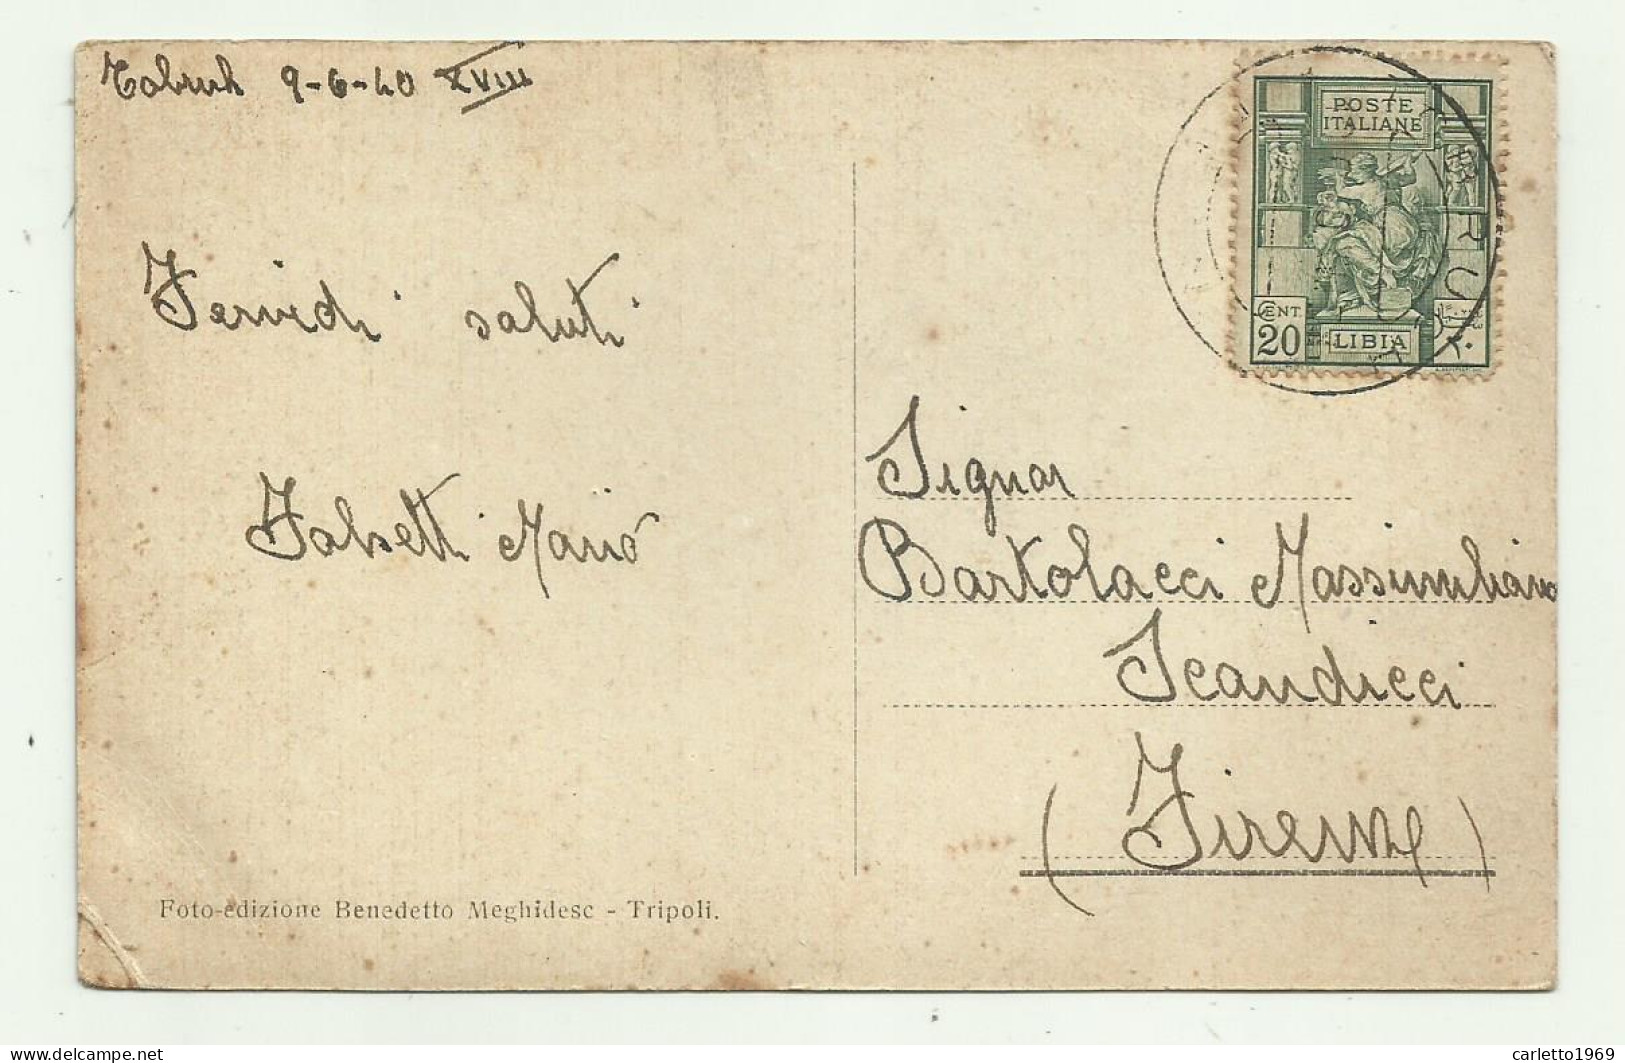 Tobruk 9-6-40 XVIII
Fervidi saluti
Falsetti Mario
Foto-edizione Benedetto Meghidesc - Tripoli.
POSTE
ITALIANE
CENT.
20
LIBIA
٢٠
TOBRUK
Signor
Bartolacci Massimiliano
Scandicci
(Firenze)
delcampe.net
carletto1969